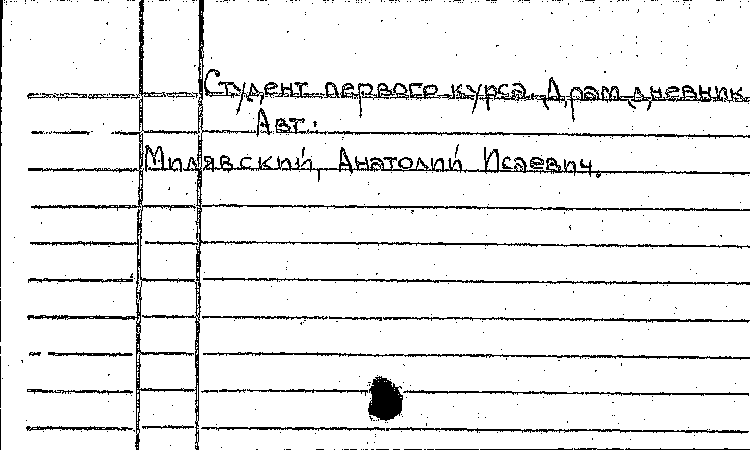 Студент первого курса. Драм. дневник
Авт.:
Милявский, Анатолий Исаевич.